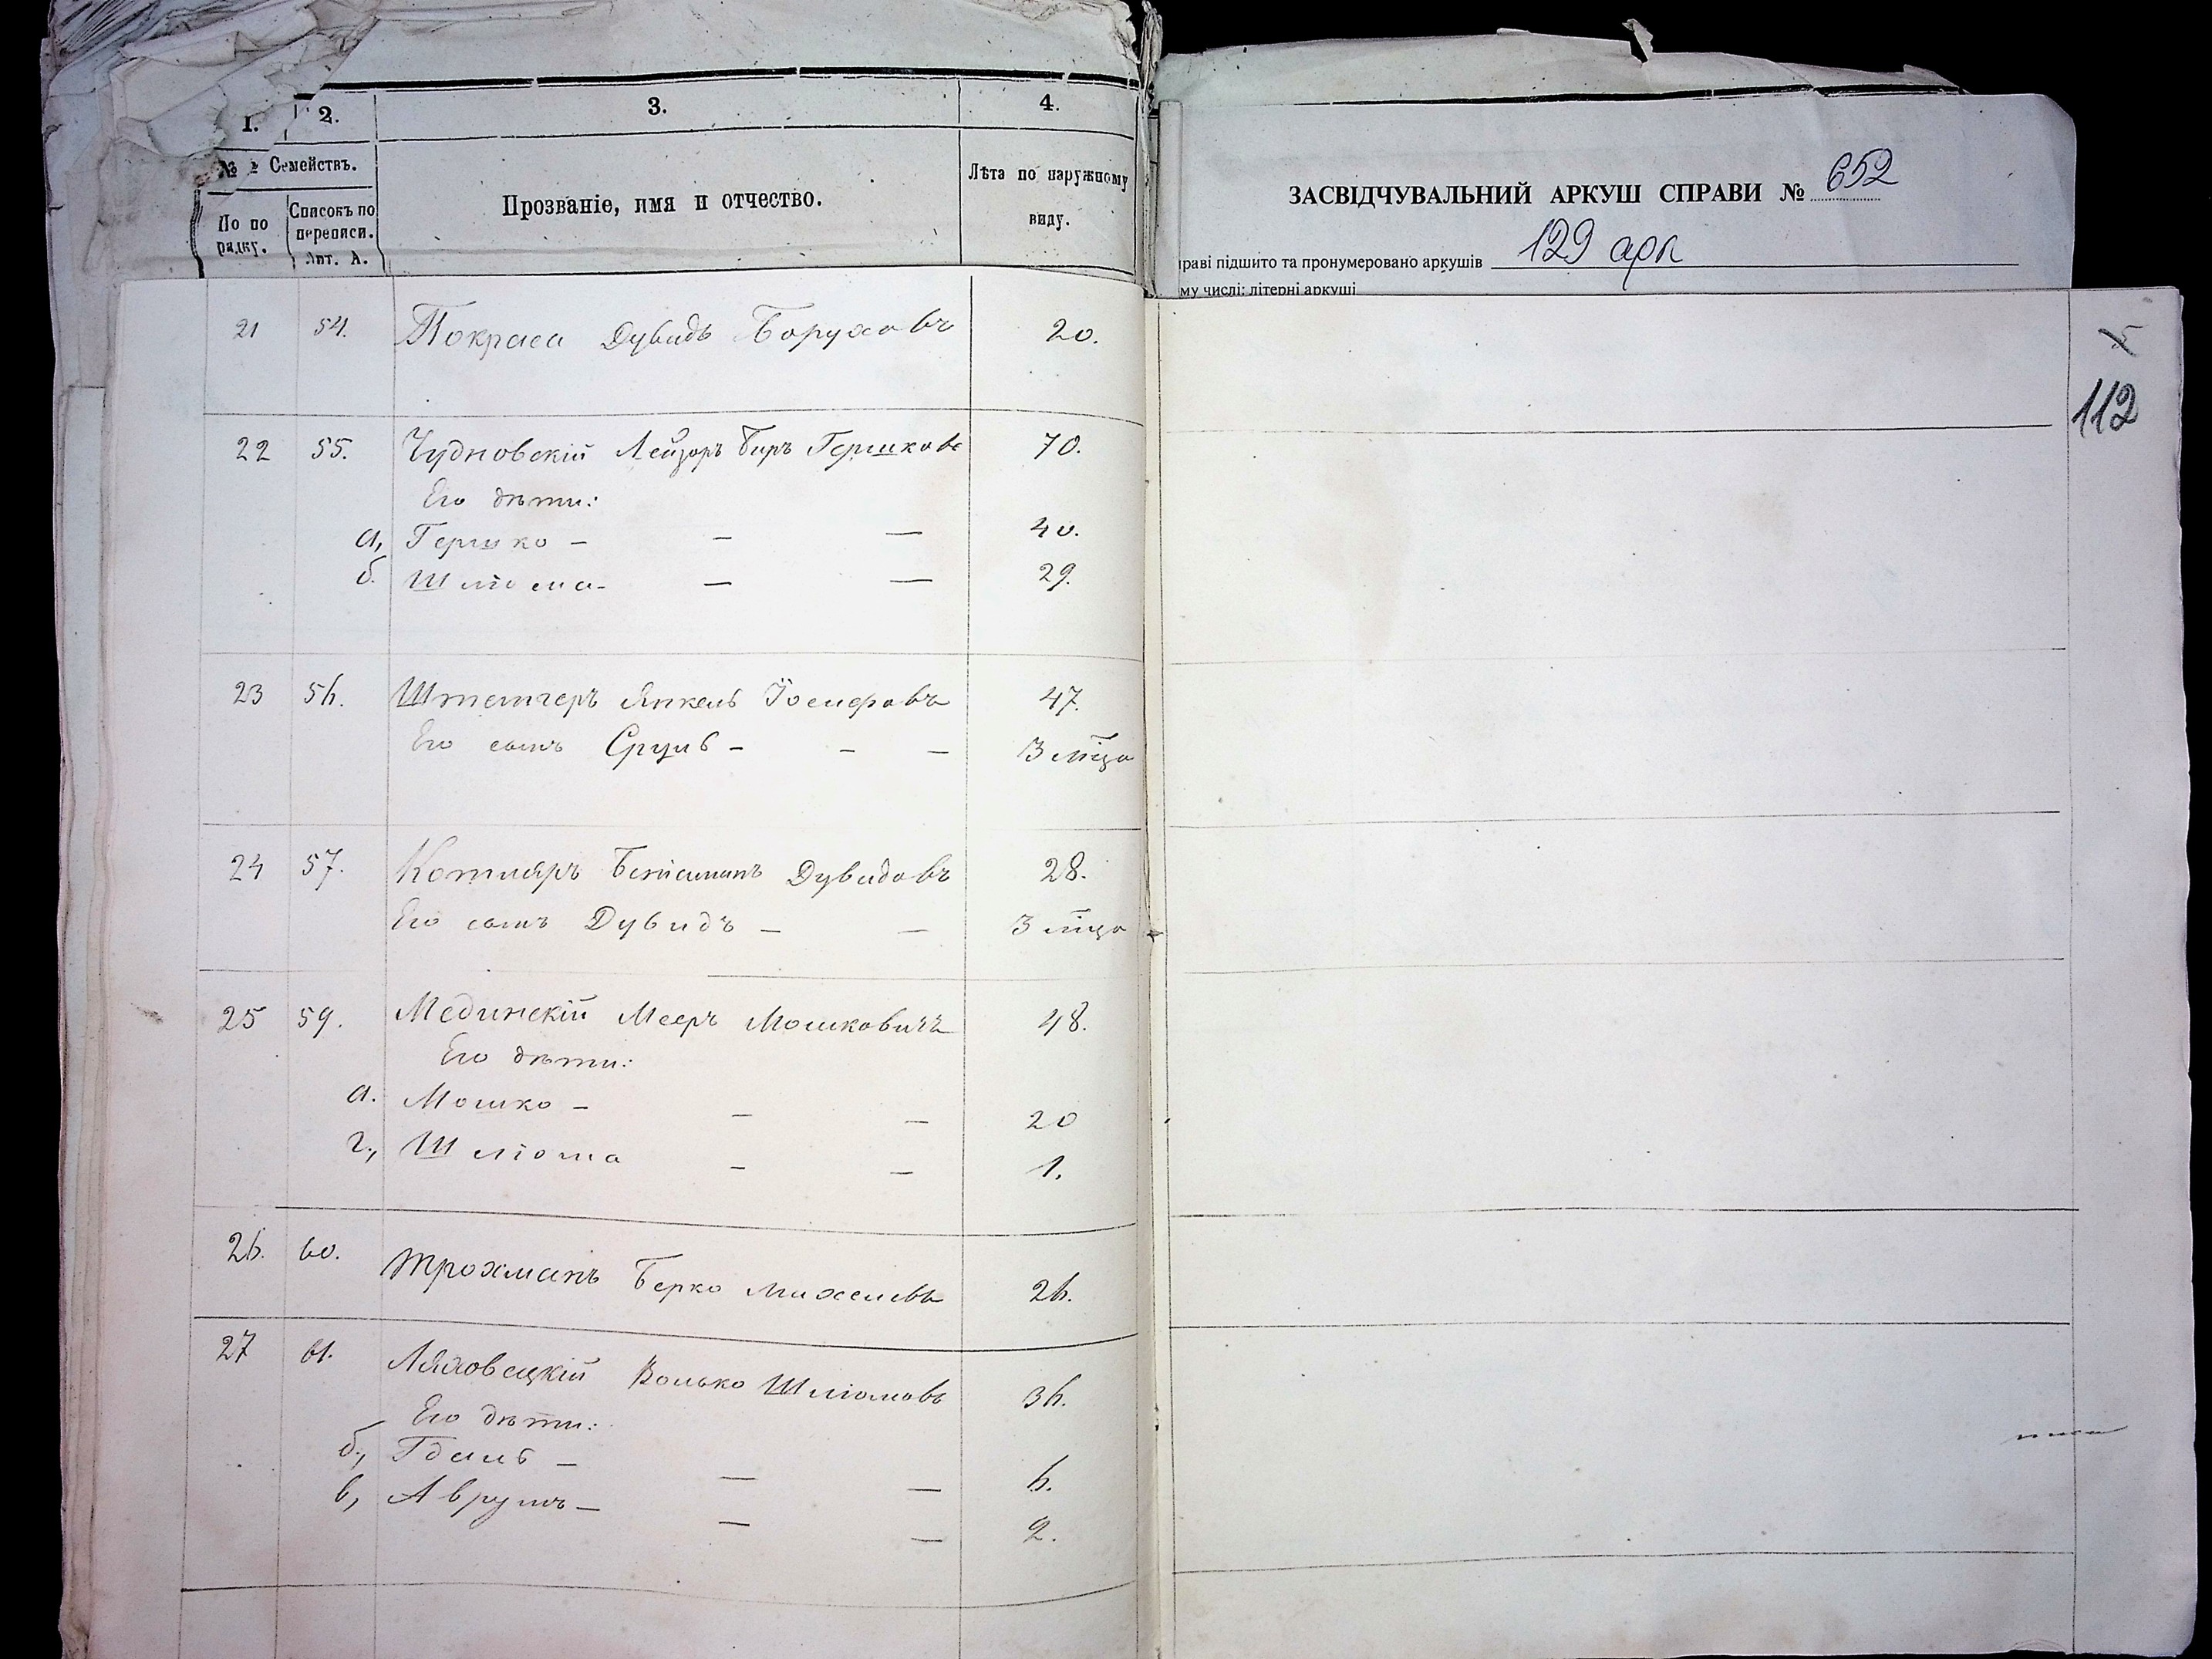 1. 2. 3. 4.
№ Семействъ.
По по рядку.
Списокъ по переписи. Лит. А.
Прозваніе, имя и отчество.
Лѣта по наружному виду.
ЗАСВІДЧУВАЛЬНИЙ АРКУШ СПРАВИ № 652
раві підшито та пронумеровано аркушів 129 арк
му числі: літерні аркуші
112
21 54. Покраса Дувидъ Боруховъ 20.
22 55. Чудновскій Лейзоръ Биръ Гершковъ 70.
Его дѣти:
а, Гершко - — — 40.
б. Шліома - — — 29.
23 56. Янкель Іосифовъ 47.
Его сынъ Сруль - - — 3 мца
24 57. Котляръ Беніаминъ Дувидовъ 28.
Его сынъ Дувидъ — — 3 мца
25 59. Мединскій Мееръ Мошковичъ 48.
Его дѣти:
а. Мошко - — — 20
г, Шліома — — 1.
26. 60. Трохманъ Берко Михелевъ 26.
27 61. Ляховецкій Волько Шліомовъ 36.
Его дѣти:
б, Гдаль — — — 6.
в, Аврумъ — — — 2.